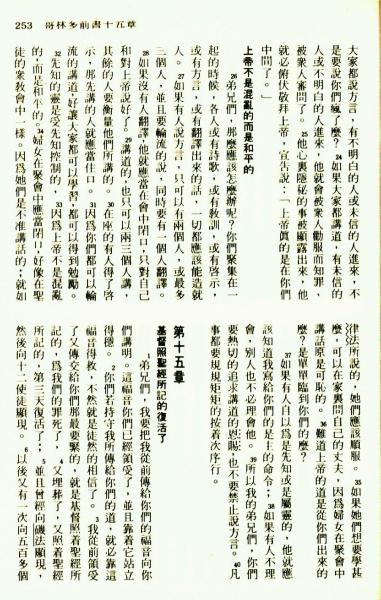 253　哥林多前書十五章
大家都說方言，有不明白的人或未信的人進來，不
是要說你們瘋了麼？24如果大家都講道，有未信的
人或不明白的人進來，他就會被衆人勸服而知罪，
被衆人審問了。25他心裏隱秘的事被顯露出來，他
就必俯伏敬拜上帝，宣告說：「上帝眞的是在你們
中間了。」
上帝不是混亂的而是和平的
26弟兄們，那麼應該怎麼辦呢？你們聚集在一
起的時候，各人或有詩歌，或有教訓，或有啓示，
或有方言，或有翻譯出來的話，一切都應該能造就
人。27如果有人說方言，只可以有兩個人，或最多
三個人，並且要輪流的說，同時要有一個人翻譯。
28如果沒有人翻譯，他就應當在會中閉口，只對自己
和對上帝說好了。29講道的，也只可以兩三個人講，
其餘的人要衡量他們所講的。30在座的有人得了啓
示，那先講的人就應當住口。31因爲你們都可以輪
流的講道，好讓大家都可以學習，都可以得到勉勵。
32先知的靈是受先知控制的，33因爲上帝不是混亂
的，而是和平的。34婦女在聚會中應當閉口，好像在聖
徒的衆教會中一樣。因爲她們是不准講話的；就如
律法所說的，她們應該順服。35如果她們想要學甚
麼，可以在家裏問自己的丈夫，因爲婦女在聚會中
講話原是可恥的。36難道上帝的道是從你們出來的
麼？是單單臨到你們的麼？
37如果有人自以爲是先知或是屬靈的，他就應
該知道我寫給你們的是主的命令；38如果有人不理
會，別人也不必理會他。39所以我的弟兄們，你們
要熱切的追求講道的恩賜，也不要禁止說方言。40凡
事都要規規矩矩的按着次序行。
第十五章
基督照聖經所記的復活了
1弟兄們，我要把我從前傳給你們的福音向你
們講明。這福音你們已經領受了，並且靠着它站立
得穩。2你們若持守我所傳給你們的道，就必靠這
福音得救，不然就是徒然的相信了。3我從前領受
了又傳交給你們那最要緊的，就是基督照着聖經所
記的，爲我們的罪死了，4又埋葬了，又照着聖經
所記的，第三天復活了；5並且曾經向磯法顯現，
然後向十二使徒顯現。6以後又有一次向五百多個